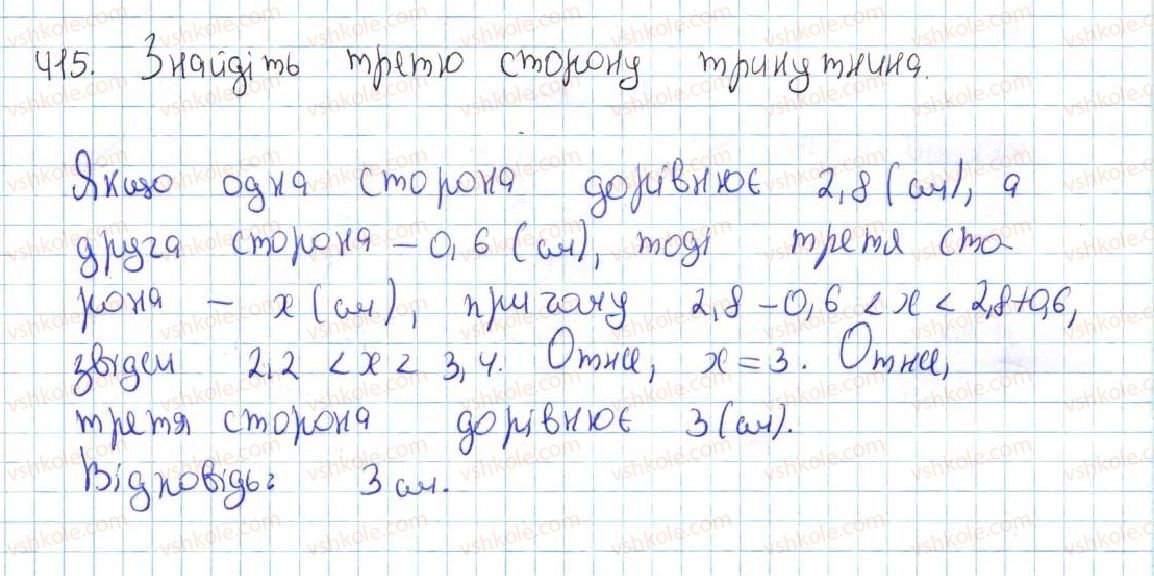 415. Знайдіть третю сторону трикутника.
Якщо одна сторона дорівнює 2,8 (см), а
друга сторона – 0,6 (см), тоді третя сто
рона – х (см), при чому 2,8 – 0,6 < x < 2,8+0,6,
звідси 2,2 < x < 3,4. Отже, x = 3. Отже,
третя сторона дорівнює 3 (см).
Відповідь: 3 см.
vshkole.com